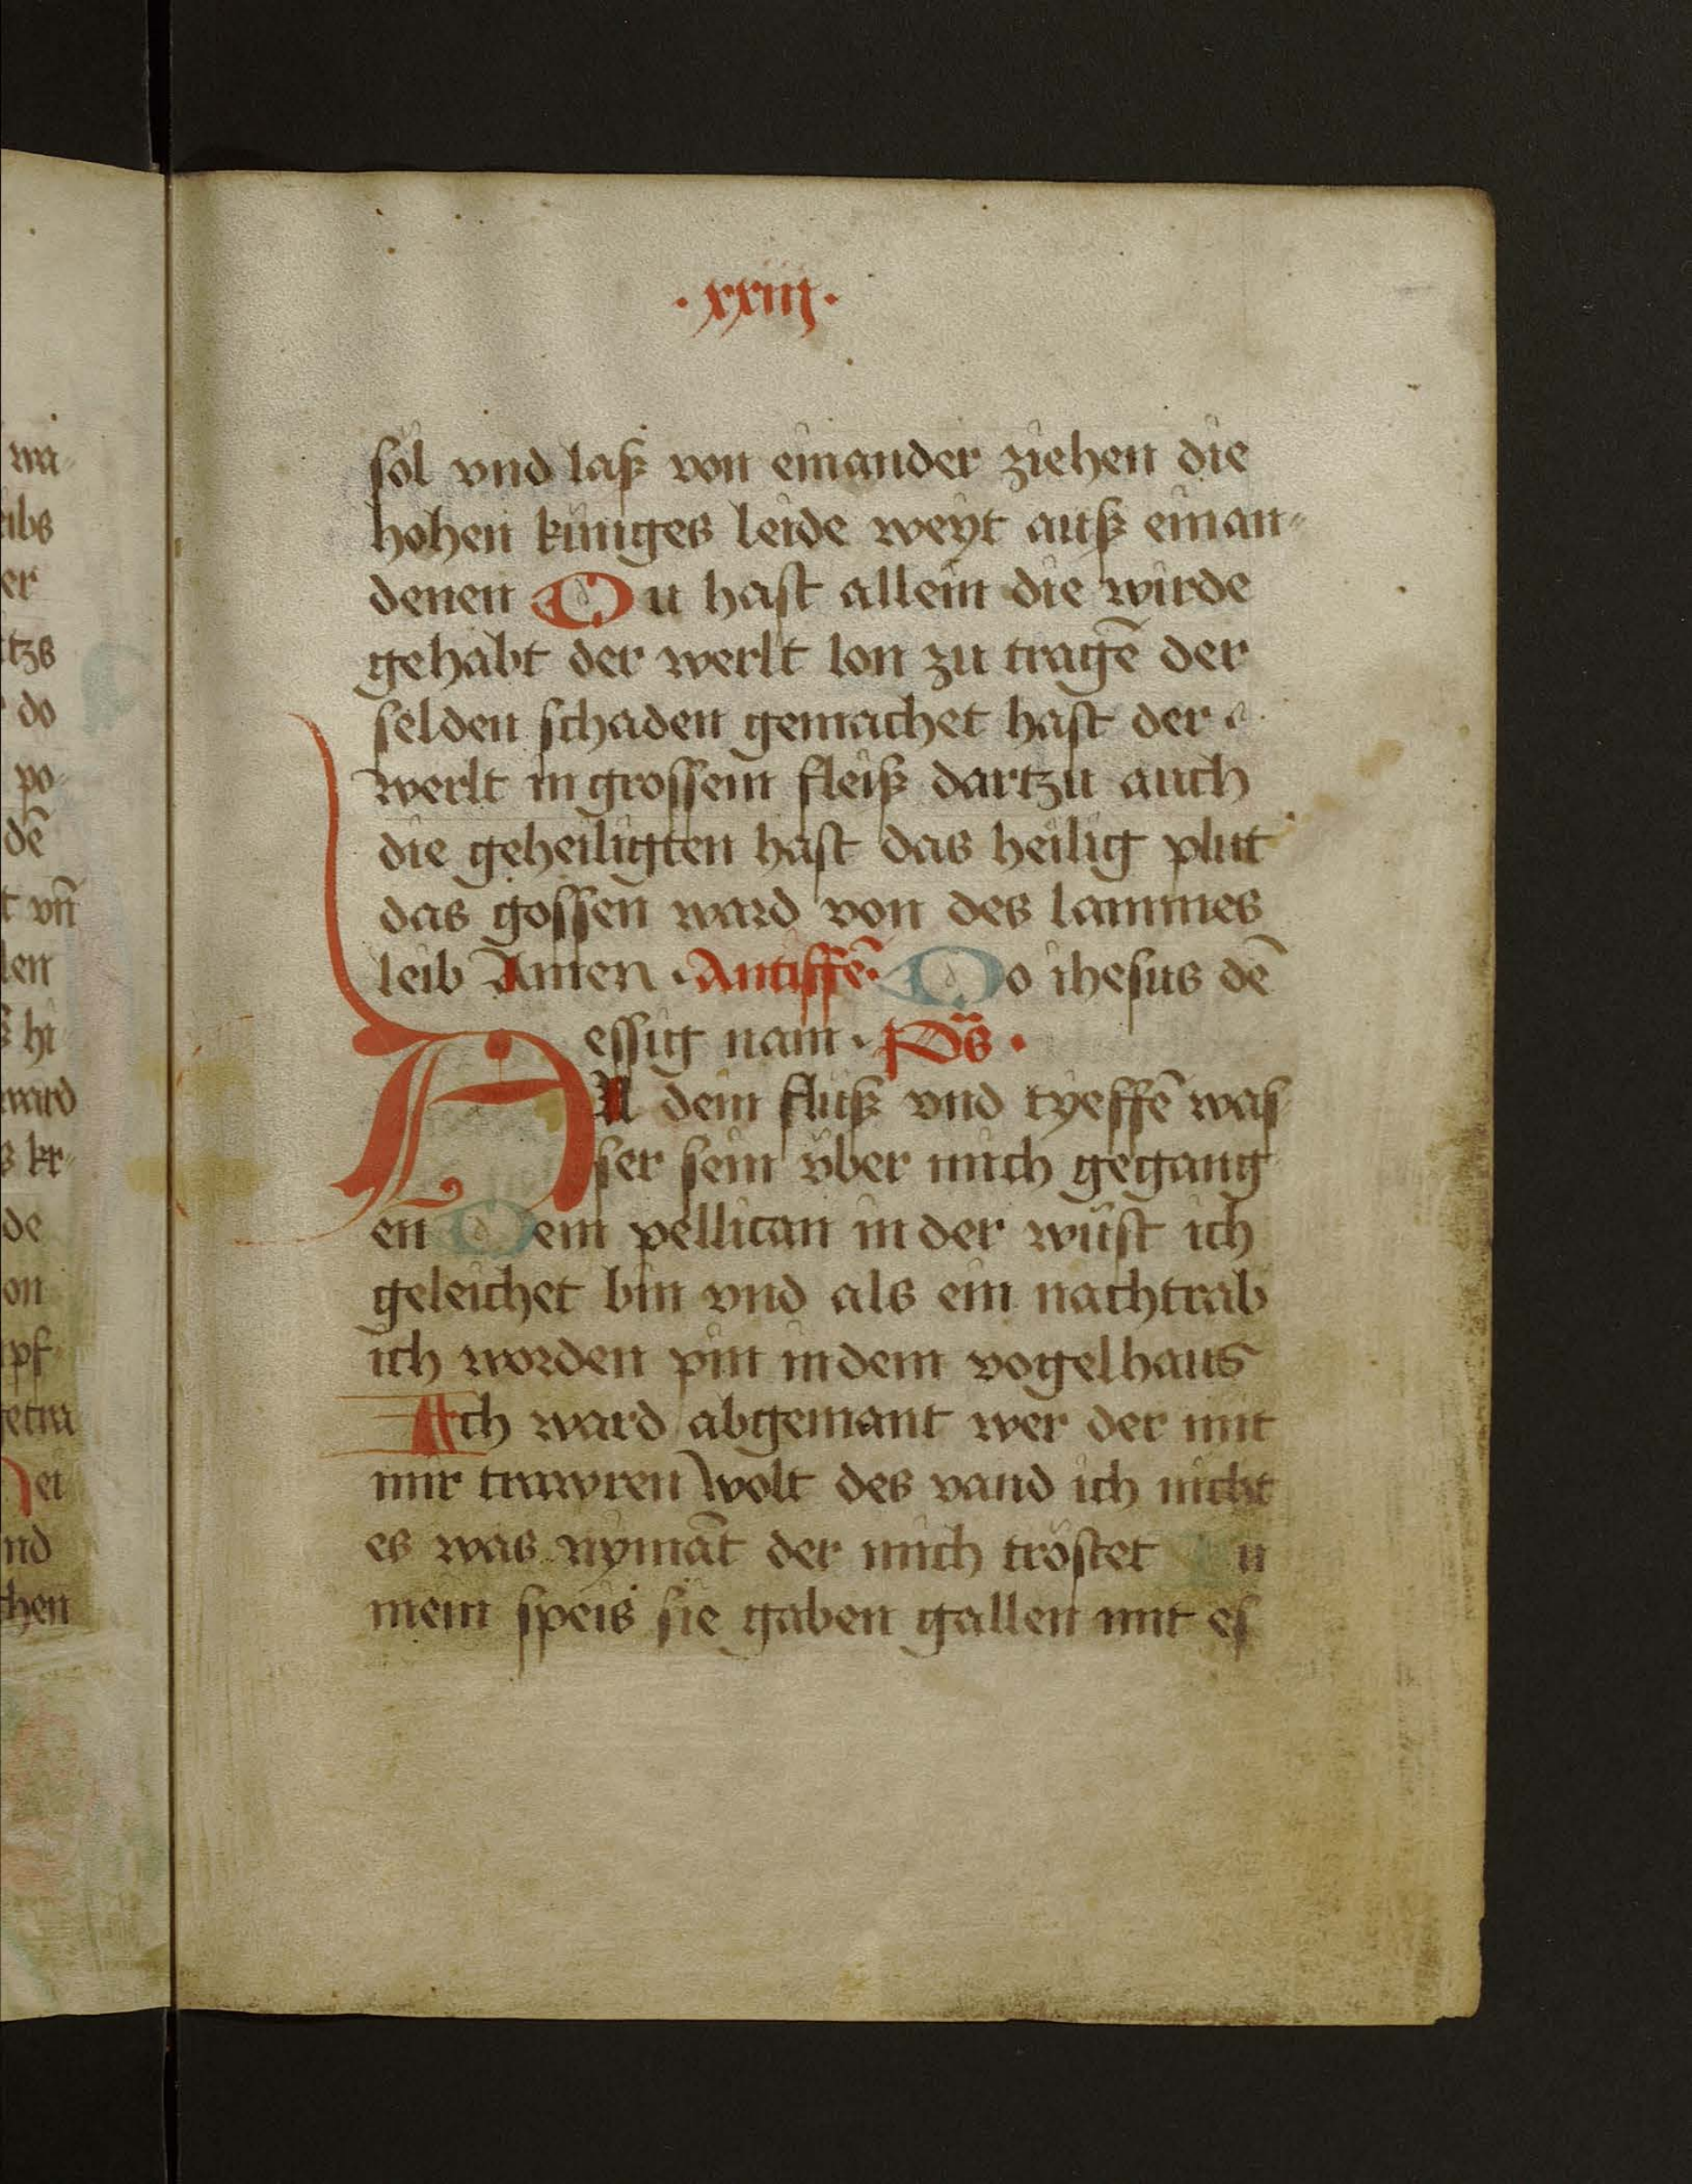 ·xxiij·
söl vnd laß von einander ziehen die
hohen küniges leide weyt auß einan=
denen Du hast allein die wirde
gehabt der werlt lon zu tragē der
selden schaden gemachet hast der
werlt in grossem fleiß dartzu auch
die geheiligten hast das heilig plut
das gossen ward von des lammes
leib Amen · Antiffē· Do ihesus dē
essig nam · Ps ·
All dein fluß vnd tyeffē was
ser sein über mich gegang
en Dem pellican in der wüst ich
geleichet bin vnd als ein nachtrab
ich worden pin in dem vogelhaus
Ich ward abgemant wer der mit
mir trawren wolt des vand ich nicht
es was nymāt der mich tröstet u
mein speis sie gaben gallen mit es
wa=
eibs
er
tzs
do
po=
dē
t vn̄
len
hi
ward
kr=
de
on
pf
getra
et
nd
chen